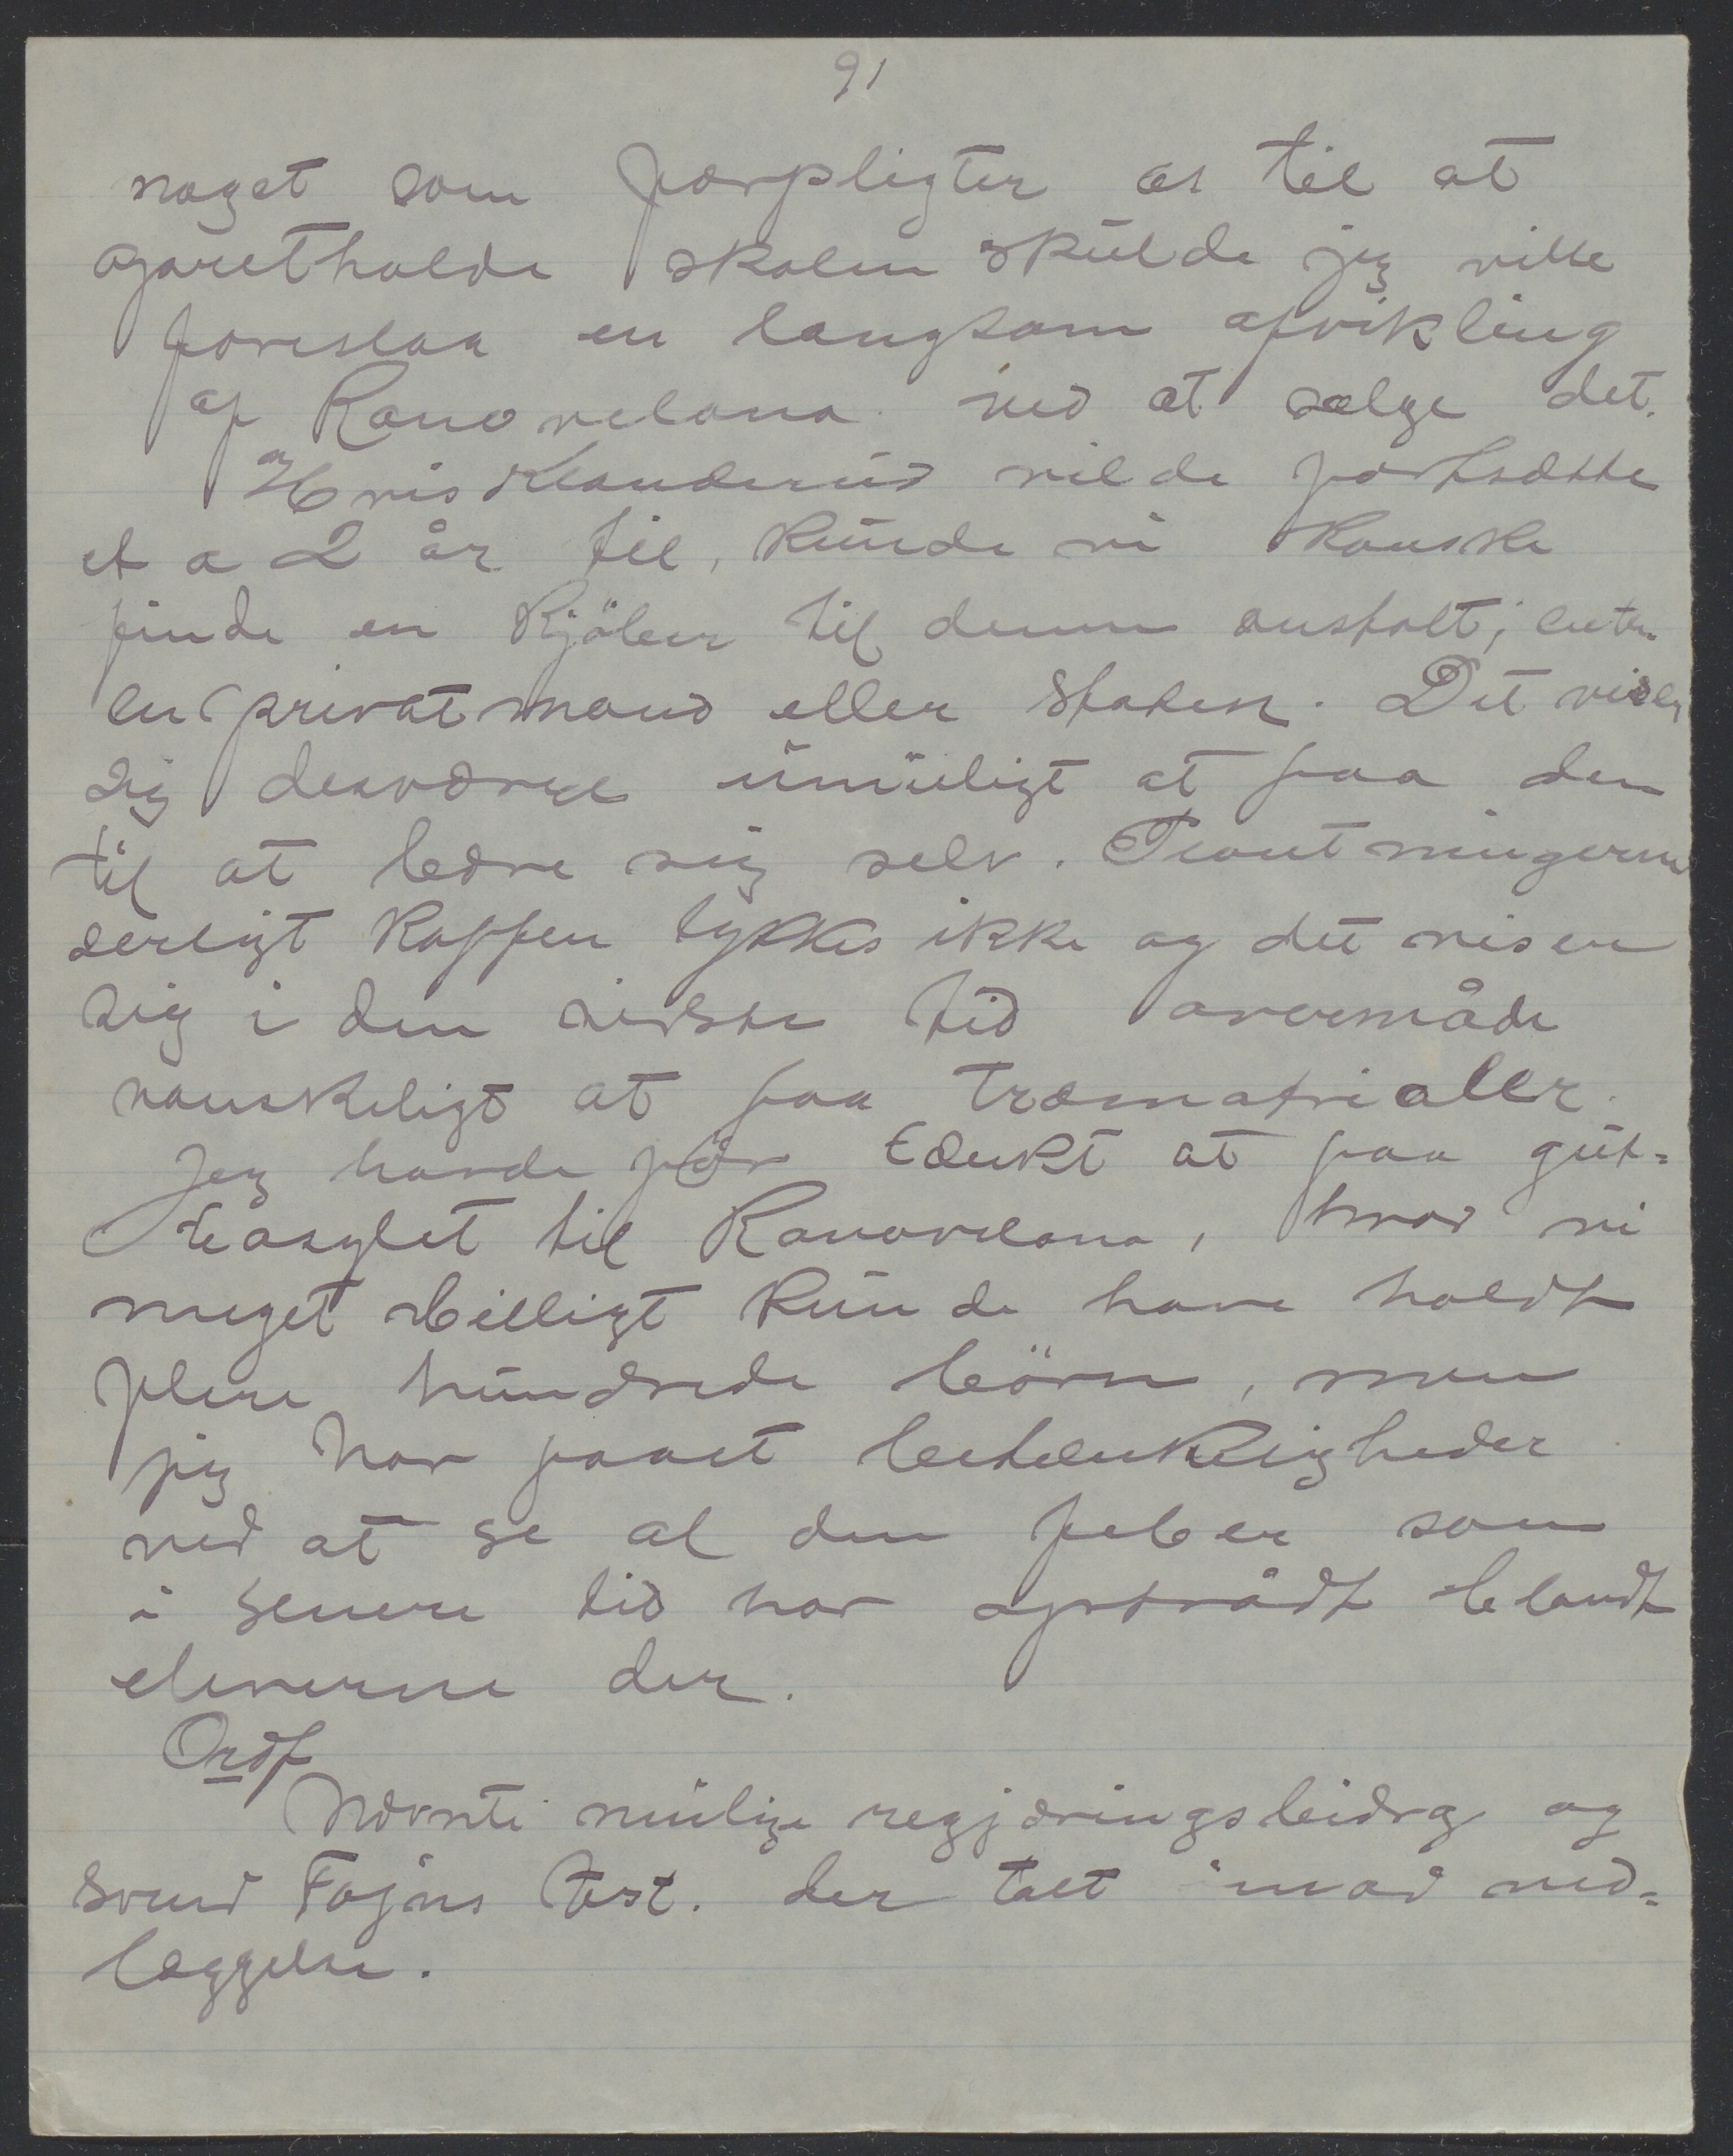 91
noget som forpligter os til at
opretholde skolen skulde jeg ville
foreslaa en langsom afvikling
af Ranovelona ved at sælge det.
Hvis Klanderud vilde fortsætte
et a 2 år til, kunde vi kanske
finde en kjöber til denne anstalt; enten
en privatmand eller staten. Det viser
sig desværre umuligt at faa den
til at bedre sig selv. Plantningerne
serligt kaffen lykkes ikke og det viser
sig i den sidste tid overmåde
vanskeligt at faa træmatrialer.
Jeg havde för tænkt at faa gut-
teasylet til Ranovelona, hvor vi
meget billigt kunde have holdt
flere hundrede börn, men
jeg har faaet betænkeligheder
ved at se al den feber som
i senere tid har optrådt blandt
eleverne der.
Ordf
Nævnte mulige regjæringsbidrag og
Svend Fojns test. der talt imod ned-
læggelse.